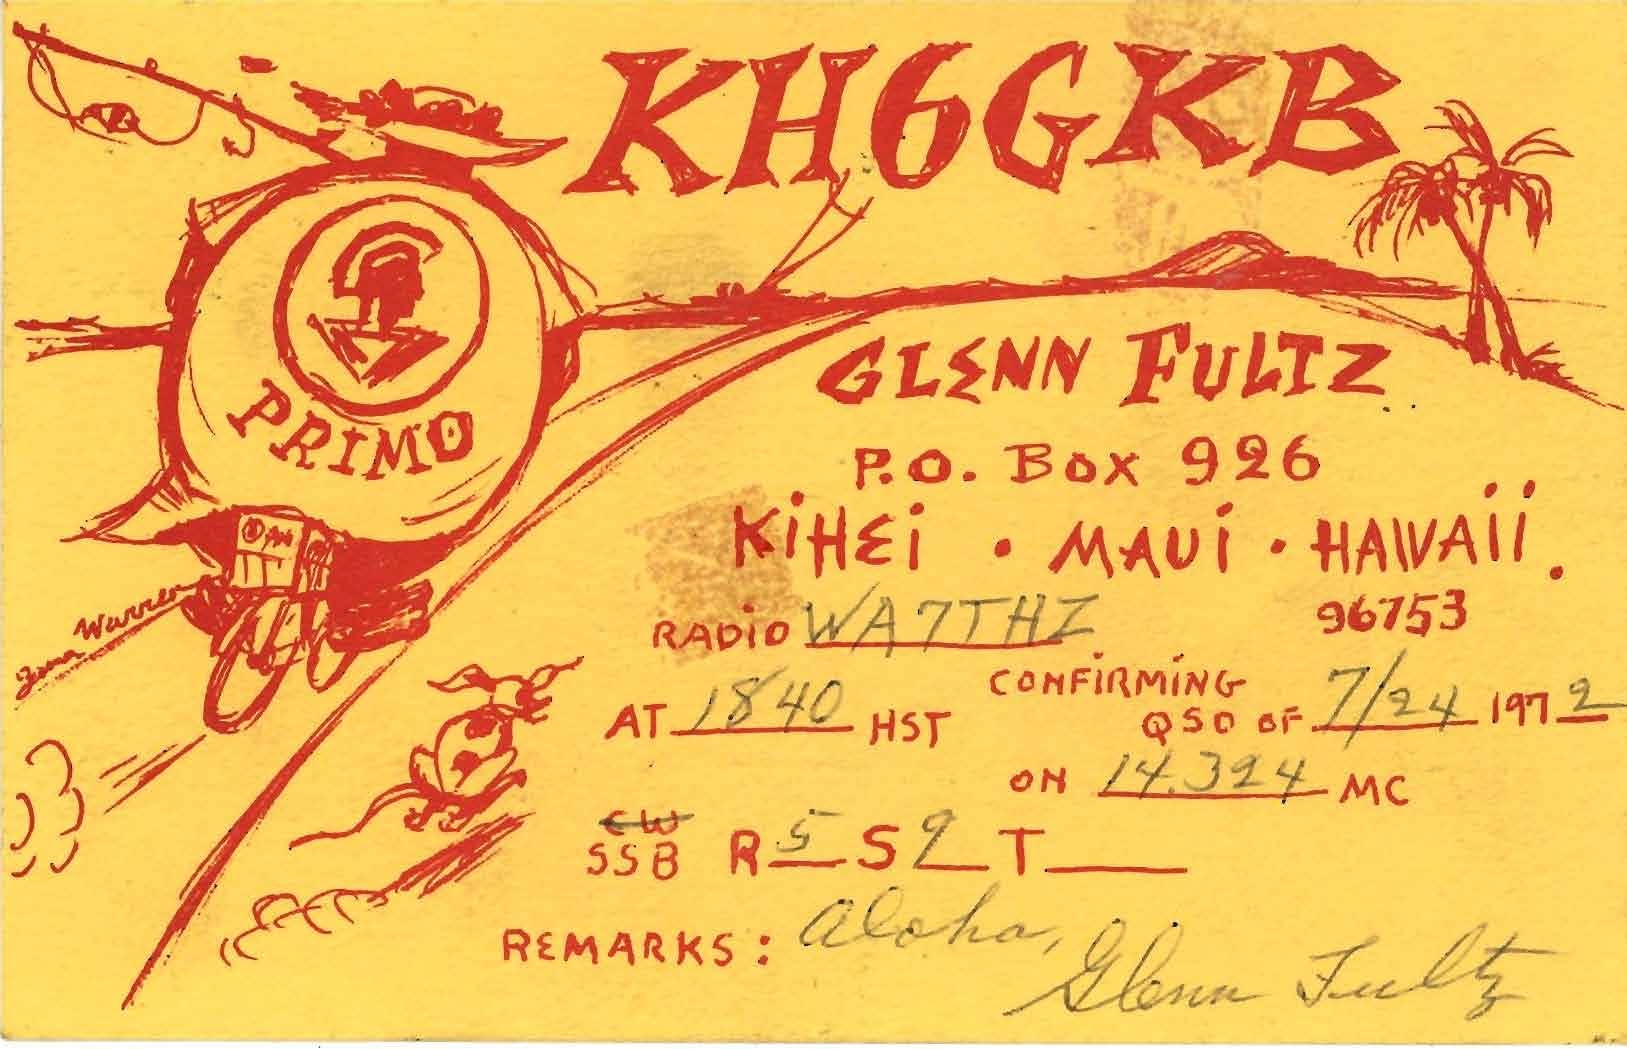 KH6GKB
PRIMO
GLENN FULTZ
P.O. BOX 926
KiHEi · MAUi · HAWAii.
96753
RADiO WA7THZ
CONFiRMiNG
AT 1840 HST
QSO OF 7/24 1972
ON 14.324 MC
CW
SSB R 5 S 9 T
REMARKS: Aloha,
Glenn Fultz
Warren